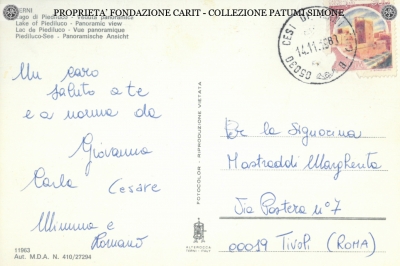 PROPRIETA' FONDAZIONE CARIT - COLLEZIONE PATUMI SIMONE
TERNI
Lago di Piediluco - Veduta panoramica
Lake of Piediluco - Panoramic view
Lac de Piediluco - Vue panoramique
Piediluco-See - Panoramische Ansicht
05030 CESI
14.11.
Un caro
saluto a te
e a nonna da
Giovanna
Carla Cesare
Mimma e
Romano
FOTOCOLOR - RIPRODUZIONE VIETATA
ALTEROCCA
TERNI - ITALY
De la Signorina
Mastroddi Margherita
Via Postera n° 7
00019 Tivoli (ROMA)
11963
Aut. M.D.A. N. 410/27294